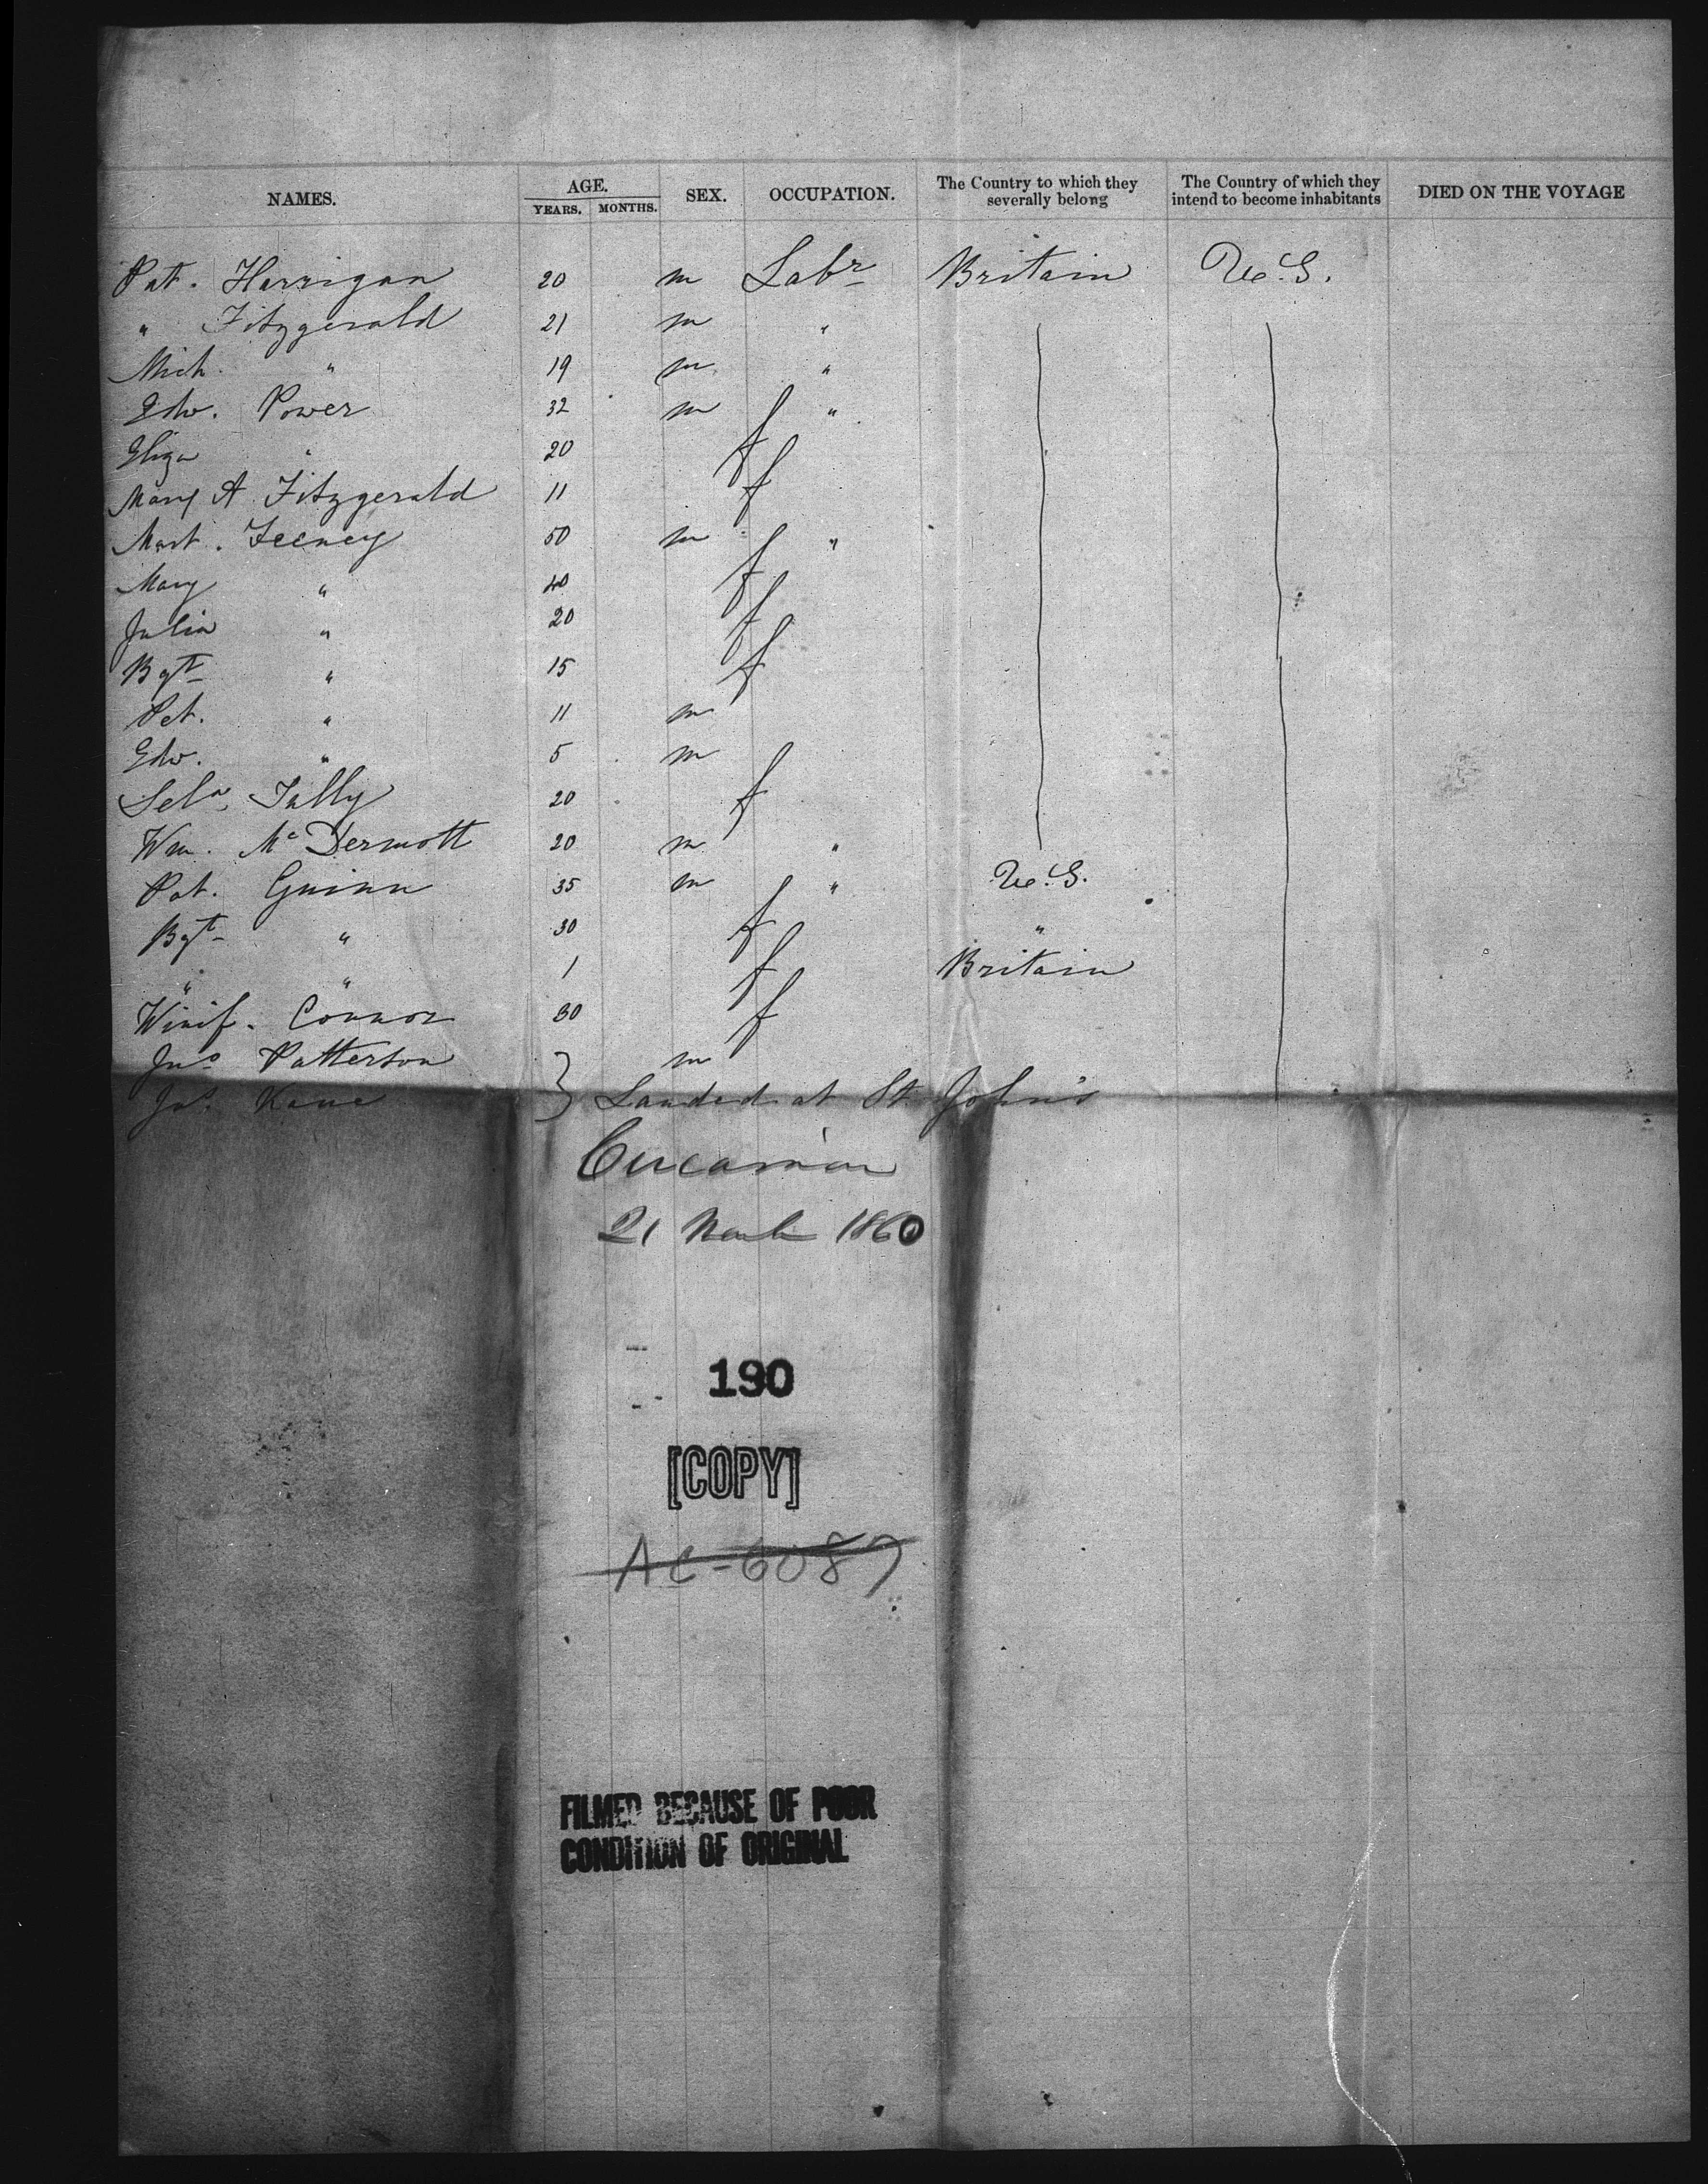 NAMES. AGE. YEARS. MONTHS. SEX. OCCUPATION. The Country to which they severally belong The Country of which they intend to become inhabitants DIED ON THE VOYAGE
Pat. Harrigan 20 m Labr Britain U.S.
" Fitzgerald 21 m "
Mich. " 19 m "
Edw. Power 32 m "
Eliza " 20 f
Mary A Fitzgerald 11 f
Mart. Feeney 50 m "
Mary " 40 f
Julia " 20 f
Bgt " 15 f
Pat. " 11 m
Edw. " 5 m
Tally 20 f
Wm. McDermott 20 m "
Pat. Guinn 35 m " U.S.
Bgt " 30 f "
" " 1 f Britain
Winif. Connor 30 f
Jno Patterson m
Jas. Kane } Landed at St John's
Circassian
21 March 1860
190
[COPY]
AC-6087
FILMED BECAUSE OF POOR
CONDITION OF ORIGINAL